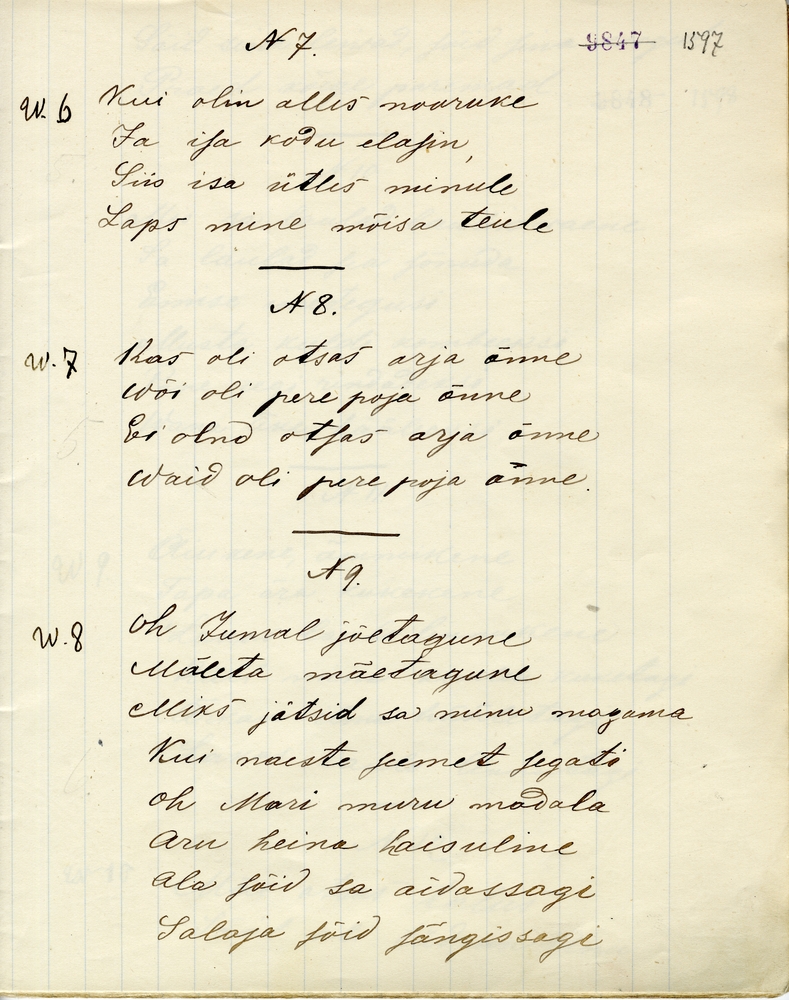 N 7.
9847 1597
W. 6 Kui olin alles nooruke
Ja isa kodu elasin,
Siis isa ütles minule
Laps mine mõisa teule
N 8.
W. 7 Kas oli otsas arja õnne
Wõi oli pere poja õnne
Ei olnd otsas arja õnne
Waid oli pere poja õnne.
N 9.
W. 8 Oh Jumal jõetagune
Máleta mäetagune
Miks jätsid sa minu magama
Kui naeste seemet segati
Oh Mari muru madala
Aru heina haisuline
Ala sõid sa aidassagi
Salaja sõid sängissagi